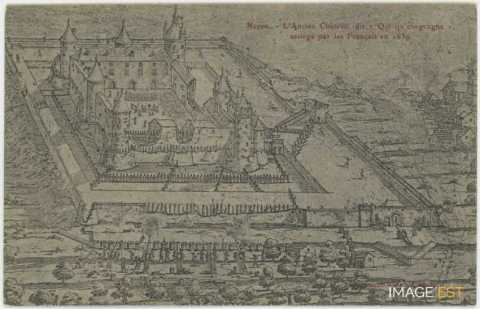 L'Ancien Château, dit « Qui qu'en grogne »,
assiégé par les Français en 1639
IMAGE'EST